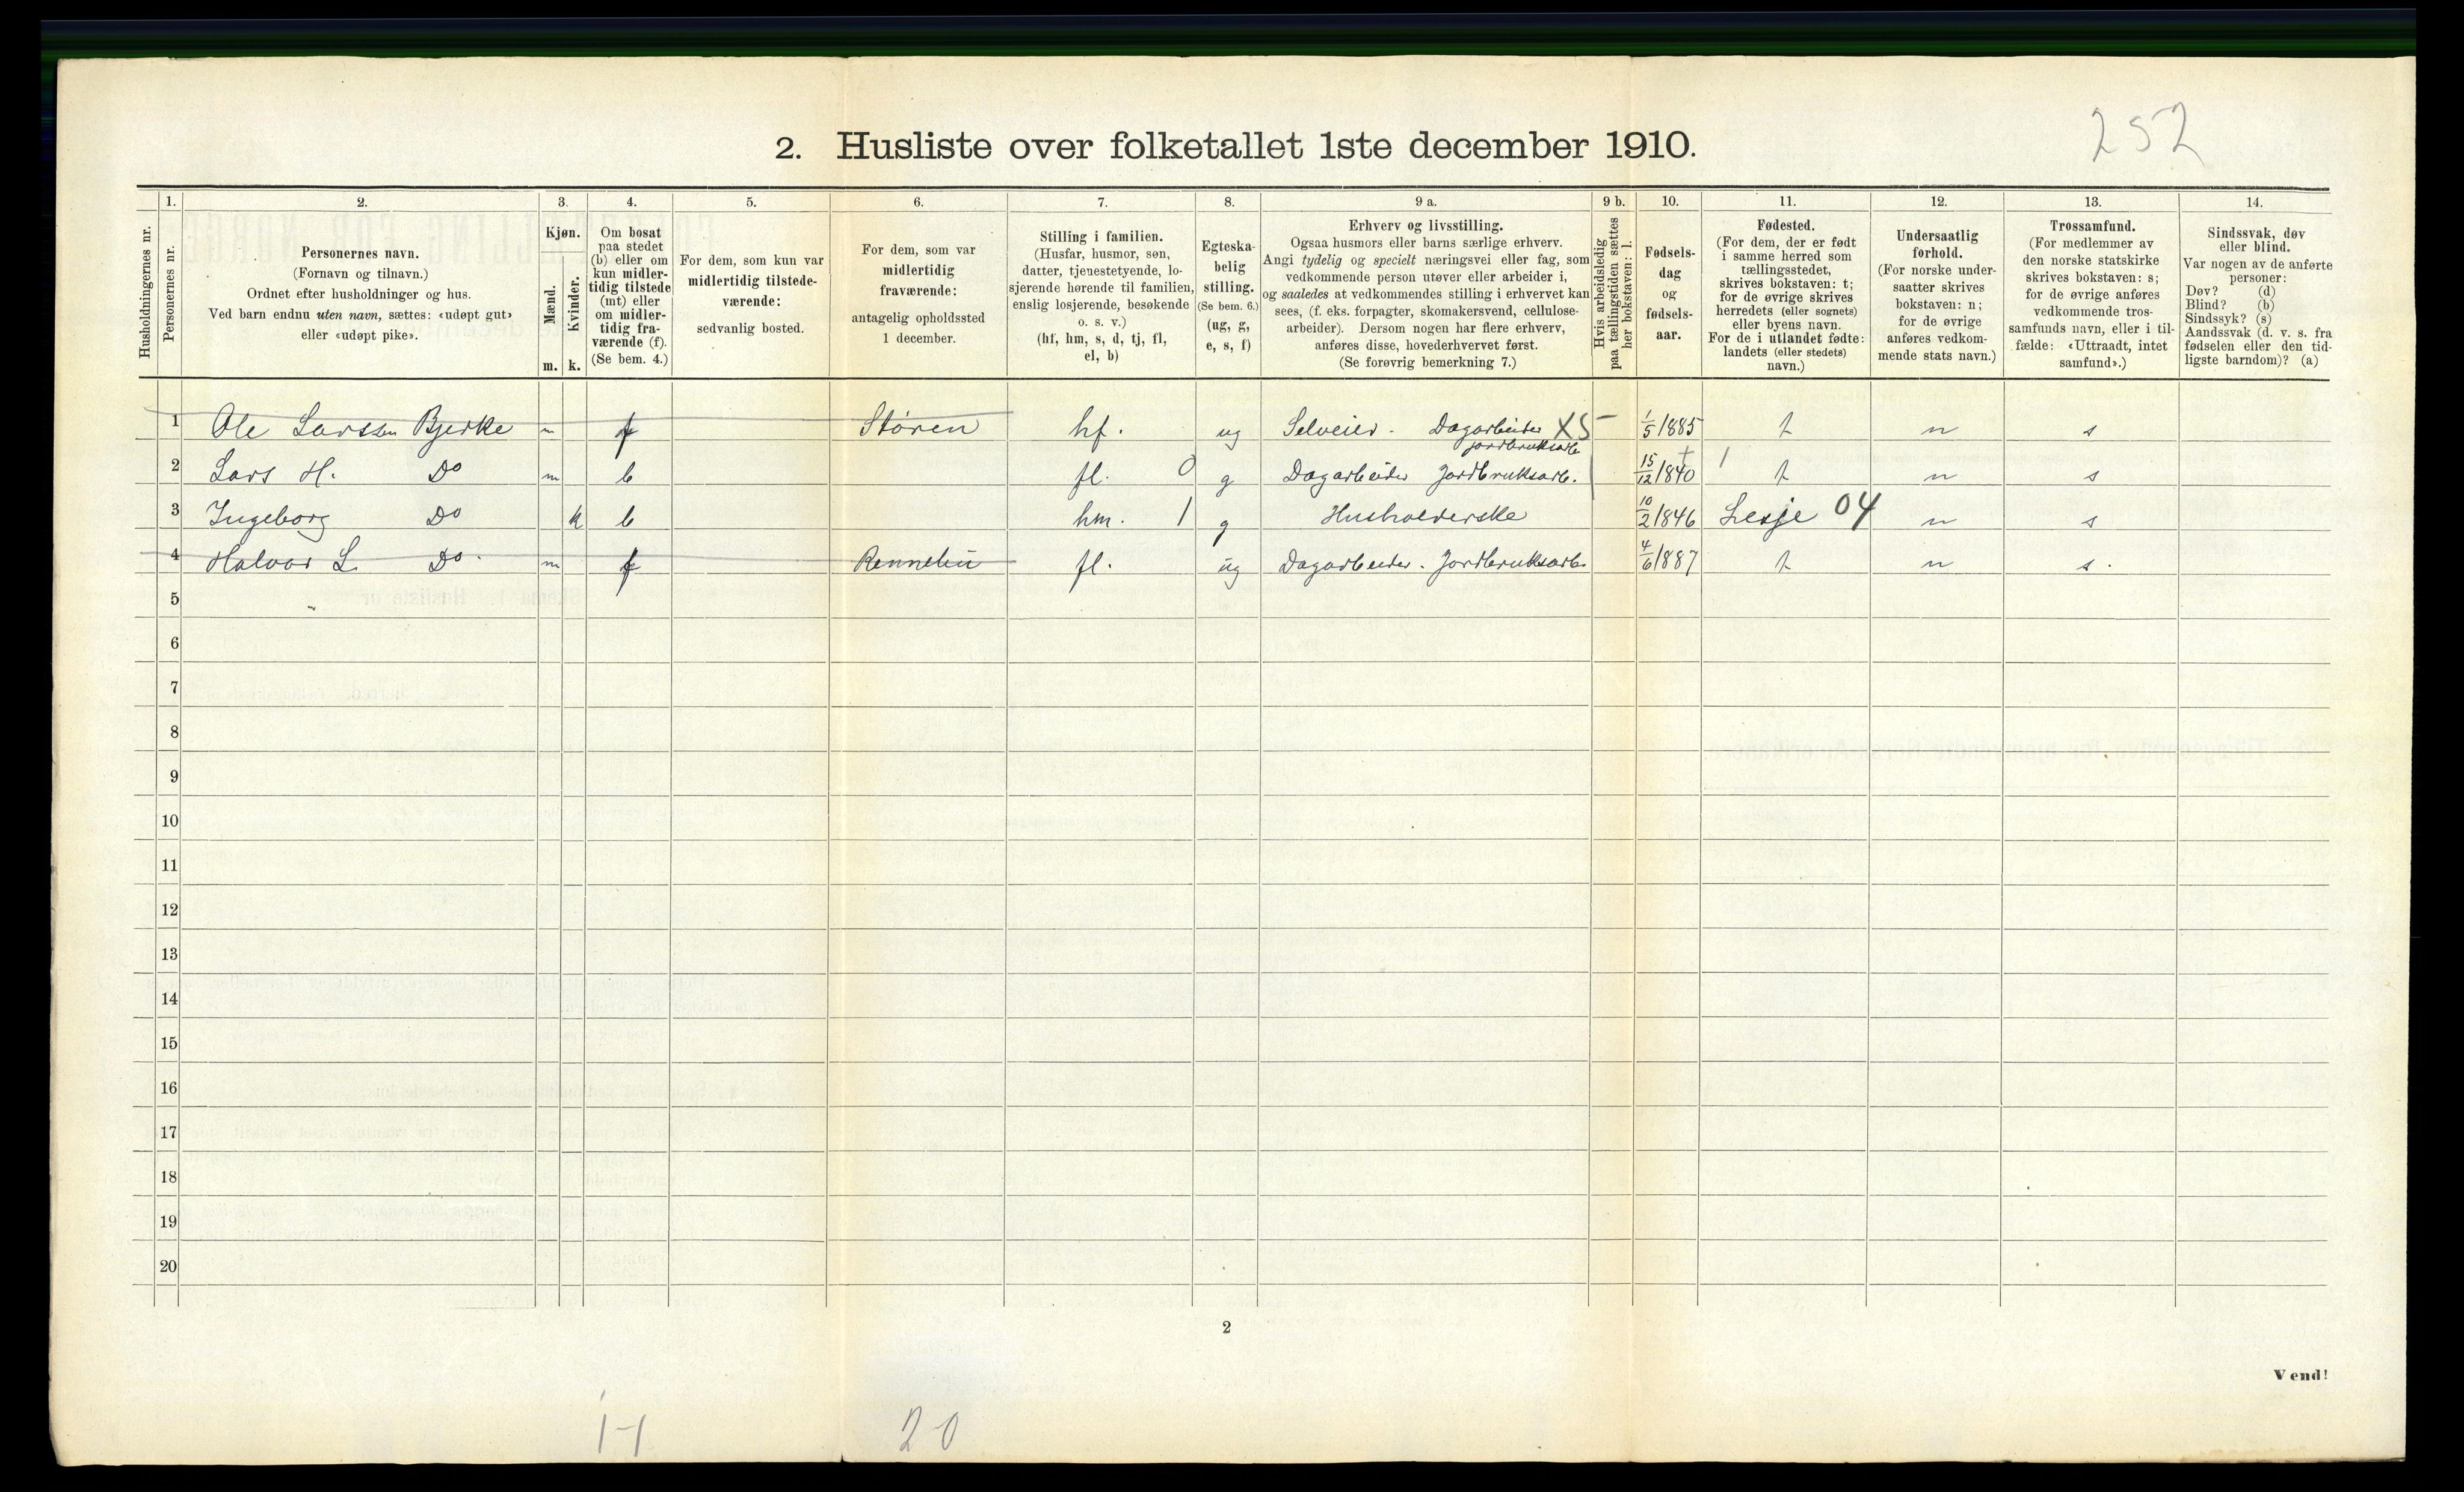 252
2. Husliste over folketallet 1ste december 1910.
Husholdningernes nr.
1.
Personernes nr.
2.
Personernes navn.
(Fornavn og tilnavn.)
Ordnet efter husholdninger og hus.
Ved barn endnu uten navn, sættes: «udøpt gut»
eller «udøpt pike».
3.
Kjøn.
Mænd.
Kvinder.
m. k.
4.
Om bosat
paa stedet
(b) eller om
kun midler-
tidig tilstede
(mt) eller
om midler-
tidig fra-
værende (f).
(Se bem. 4.)
5.
For dem, som kun var
midlertidig tilstede-
værende:
sedvanlig bosted.
6.
For dem, som var
midlertidig
fraværende:
antagelig opholdssted
1 december.
7.
Stilling i familien.
(Husfar, husmor, søn,
datter, tjenestetyende, lo-
sjerende hørende til familien,
enslig losjerende, besøkende
o. s. v.)
(hf, hm, s, d, tj, fl,
el, b)
8.
Egteska-
belig
stilling.
(Se bem. 6.)
(ug, g,
e, s, f)
9 a.
Erhverv og livsstilling.
Ogsaa husmors eller barns særlige erhverv.
Angi tydelig og specielt næringsvei eller fag, som
vedkommende person utøver eller arbeider i,
og saaledes at vedkommendes stilling i erhvervet kan
sees, (f. eks. forpagter, skomakersvend, cellulose-
arbeider). Dersom nogen har flere erhverv,
anføres disse, hovederhvervet først.
(Se forøvrig bemerkning 7.)
9 b.
Hvis arbeidsledig
paa tællingstiden sættes
her bokstaven: l.
10.
Fødsels-
dag
og
fødsels-
aar.
11.
Fødested.
(For dem, der er født
i samme herred som
tællingsstedet,
skrives bokstaven: t;
for de øvrige skrives
herredets (eller sognets)
eller byens navn.
For de i utlandet fødte:
landets (eller stedets)
navn.)
12.
Undersaatlig
forhold.
(For norske under-
saatter skrives
bokstaven: n;
for de øvrige
anføres vedkom-
mende stats navn.)
13.
Trossamfund.
(For medlemmer av
den norske statskirke
skrives bokstaven: s;
for de øvrige anføres
vedkommende tros-
samfunds navn, eller i til-
fælde: «Uttraadt, intet
samfund».)
14.
Sindssvak, døv
eller blind.
Var nogen av de anførte
personer:
Døv? (d)
Blind? (b)
Sindssyk? (s)
Aandssvak (d. v. s. fra
fødselen eller den tid-
ligste barndom)? (a)
1 Ole Larssen Bjerke m f Støren hf. ug Selveier - Dagarbeider X5 - 1/5 1885 t n s
jordbruksarb
2 Lars H. Do m b fl. 0 g Dagarbeider Jordbruksarb. 15/12 1840 t n s
3 Ingeborg Do k b hm. 1 g Husholderske 10/2 1846 Lesje 04 n s
4 Halvor L. Do. m f Rennebu fl. ug Dagarbeider. Jordbruksarb. 4/6 1887 t n s.
5
6
7
8
9
10
11
12
13
14
15
16
17
18
19
20
2
Vend!
1-1 2-0